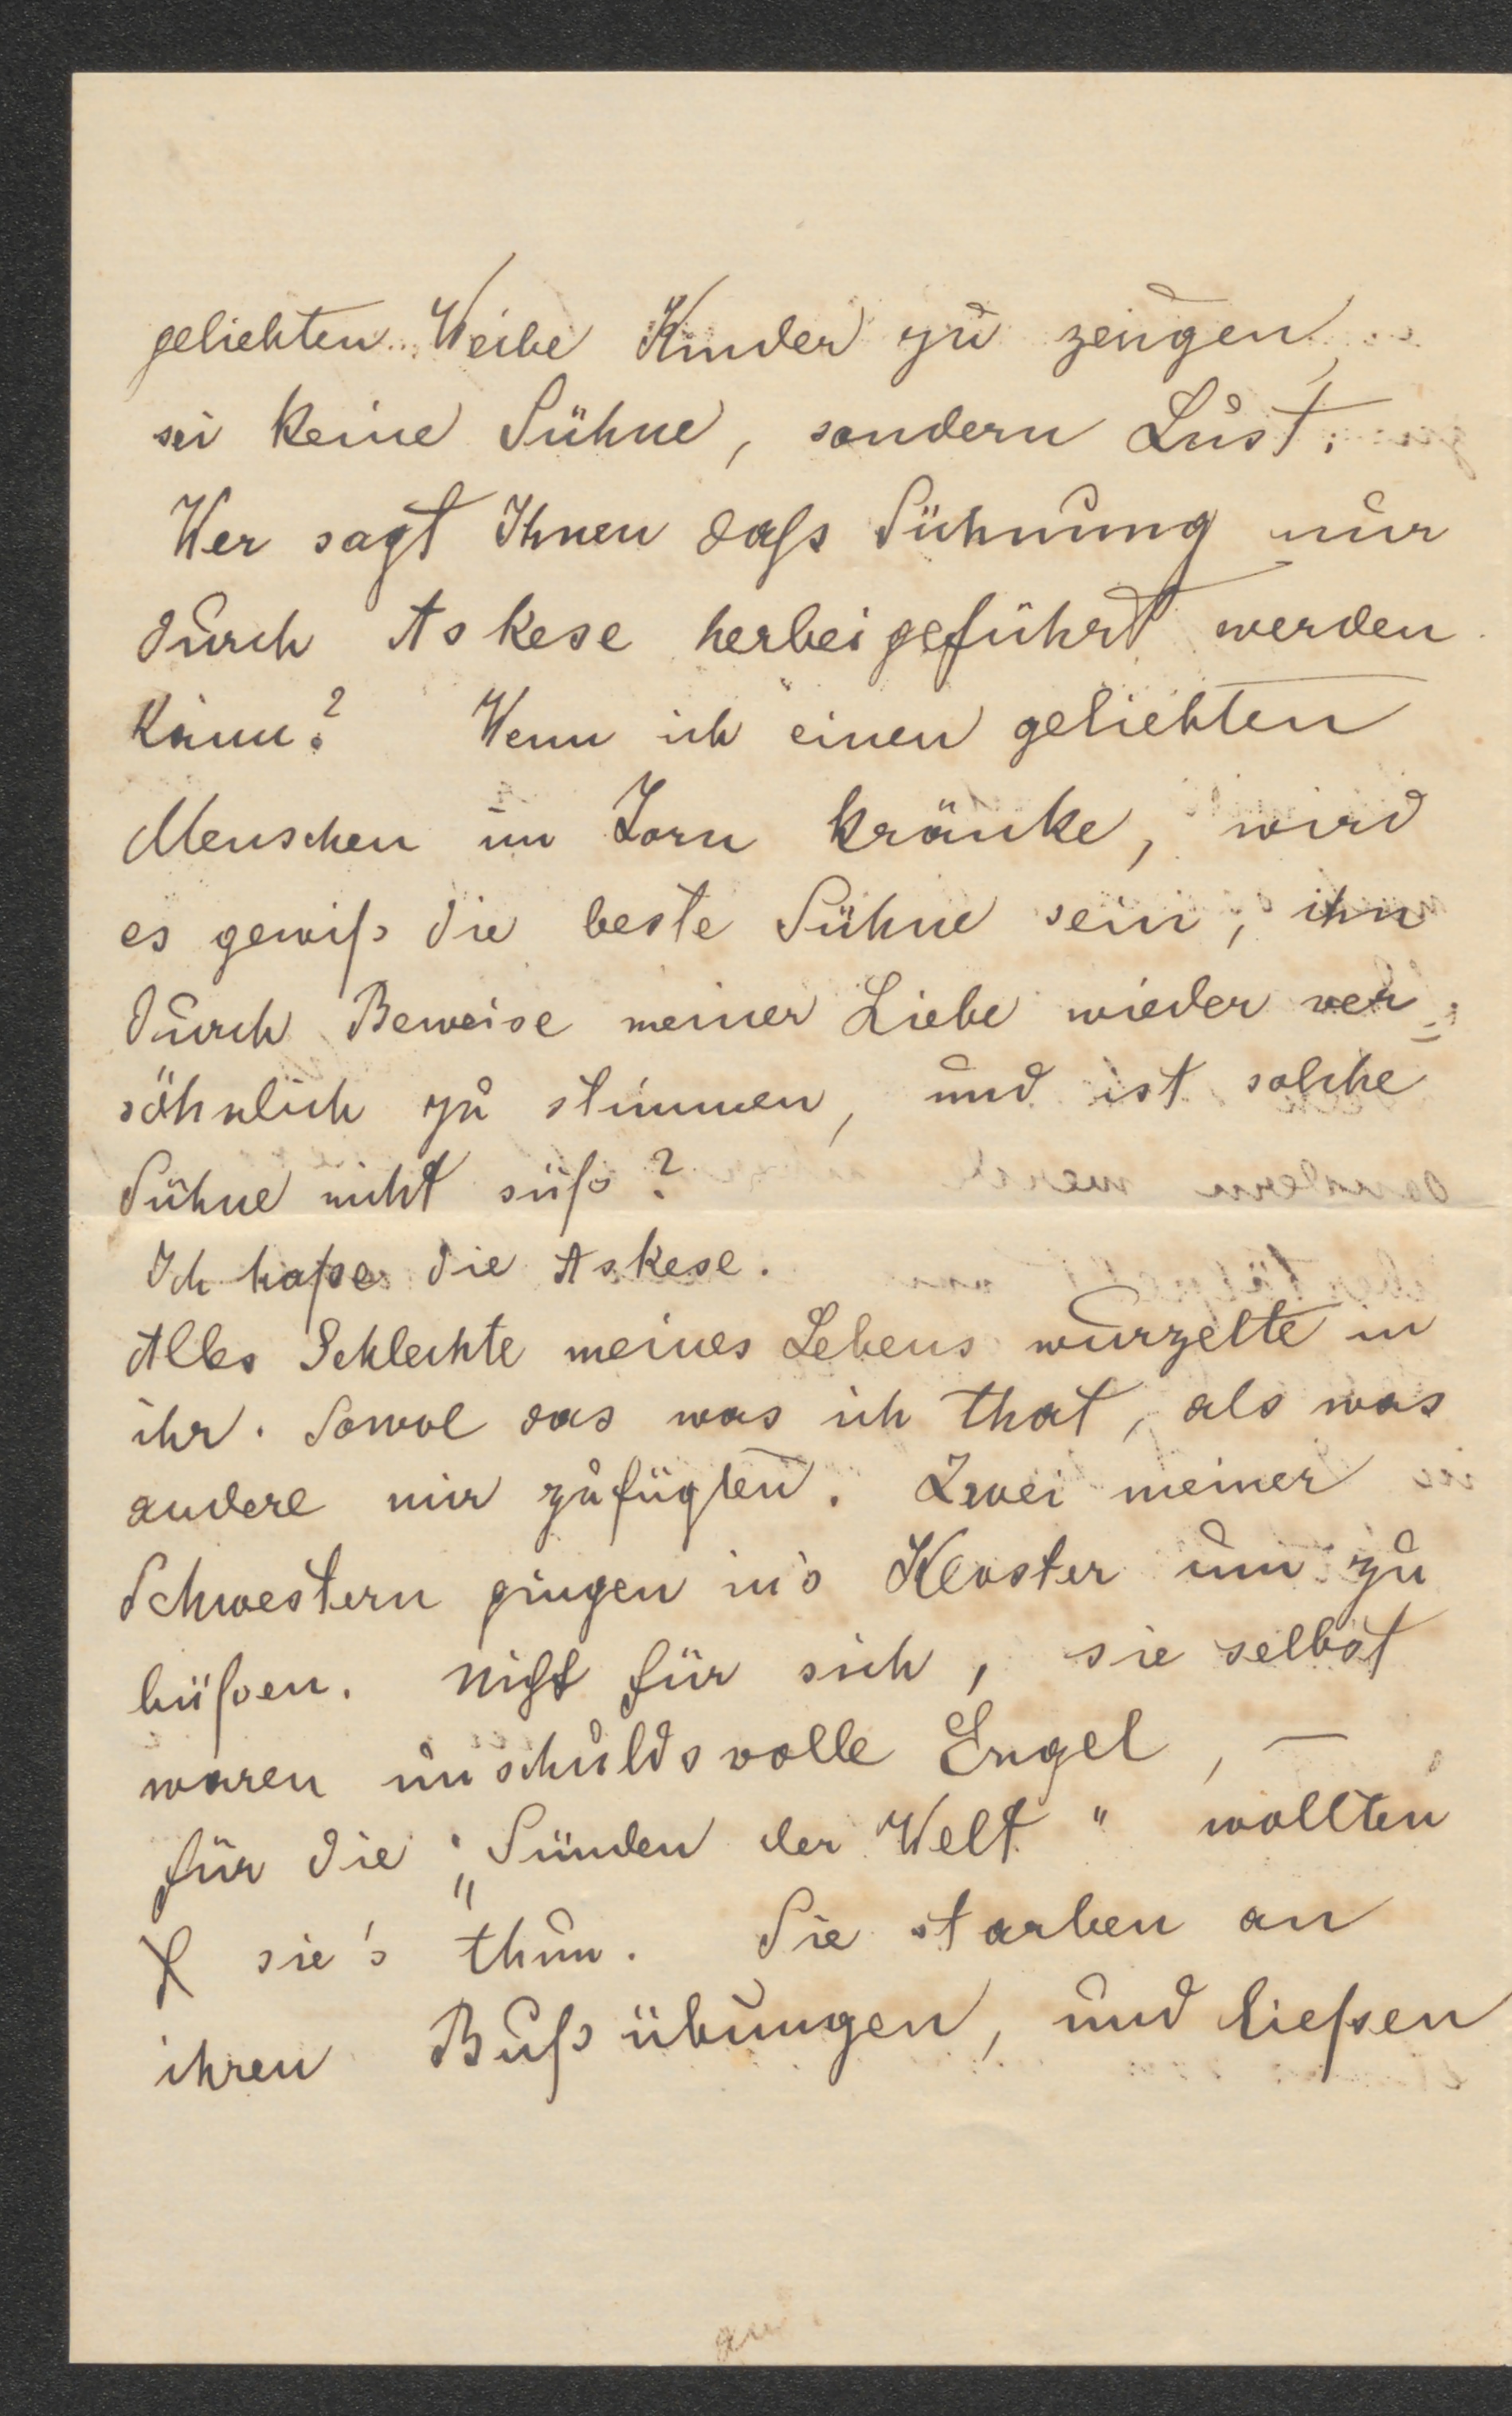 geliebten Weibe Kinder zu zeugen,
sei keine Sühne, sondern Lust.
Wer sagt Ihnen daß Sühnung nur
durch Askese herbeigeführt werden
kann? Wenn ich einen geliebten
Menschen im Zorn kränke, wird
es gewiß die beste Sühne sein, ihn
durch Beweise meiner Liebe wieder ver=
söhnlich zu stimmen, und ist solche
Sühne nicht süß?
Ich haße die Askese.
Alles Schlechte meines Lebens wurzelte in
ihr. Sowol das was ich that, als was
andere mir zufügten. Zwei meiner
Schwestern gingen in's Kloster um zu
büßen. Nicht für sich, sie selbst
waren unschuldsvolle Engel, —
für die „Sünden der Welt" wollten
sie's thun. Sie starben an
ihren Bußübungen, und ließen